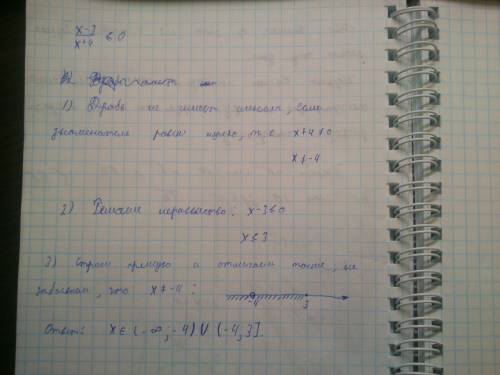 x-3
x+4 ≤ 0
1) Дробь не имеет смысла, если
знаменатель равен нулю, т.е x+4≠0
x≠-4
2) Решаем неравенство: x-3≤0
x≤3
3) Строим прямую и отмечаем точки, не
забываем, что x≠-4:
-4 3
Ответ: x∈(-∞;-4)∪(-4,3].